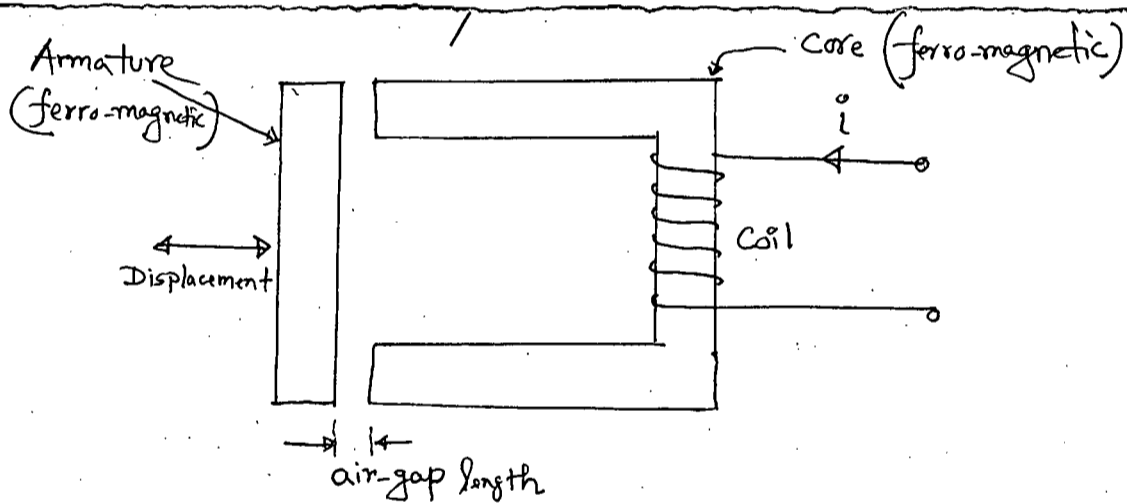 Armature
(ferro-magnetic)
Core (ferro-magnetic)
i
Coil
Displacement
air-gap length